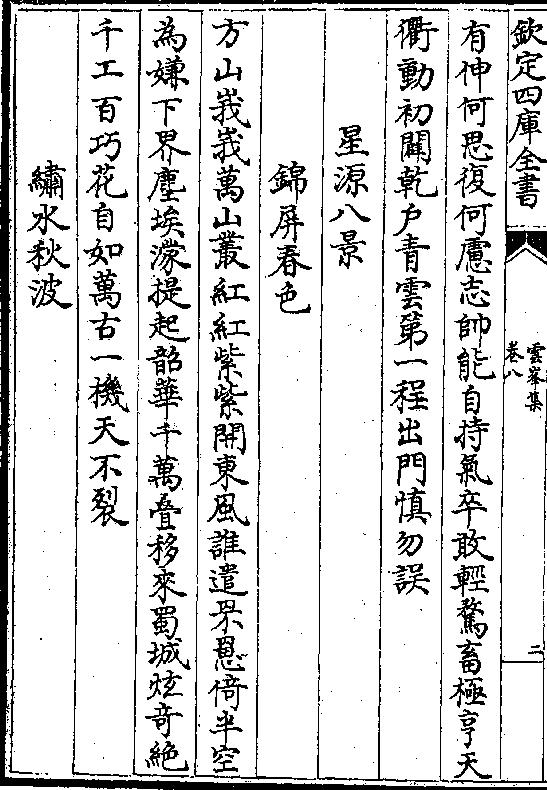 欽定四庫全書
雲峯集
卷八
二
有伸何思復何慮志帥能自持氣卒敢輕騖畜極亨天
衢動初闢乾户青雲第一程出門慎勿誤
星源八景
錦屏春色
方山峩峩萬山叢紅紅紫紫開東風誰遣罘罳倚半空
為嫌下界塵埃濛提起韶華千萬疊移來蜀城炫奇絶
千工百巧花自如萬古一機天不裂
繡水秋波